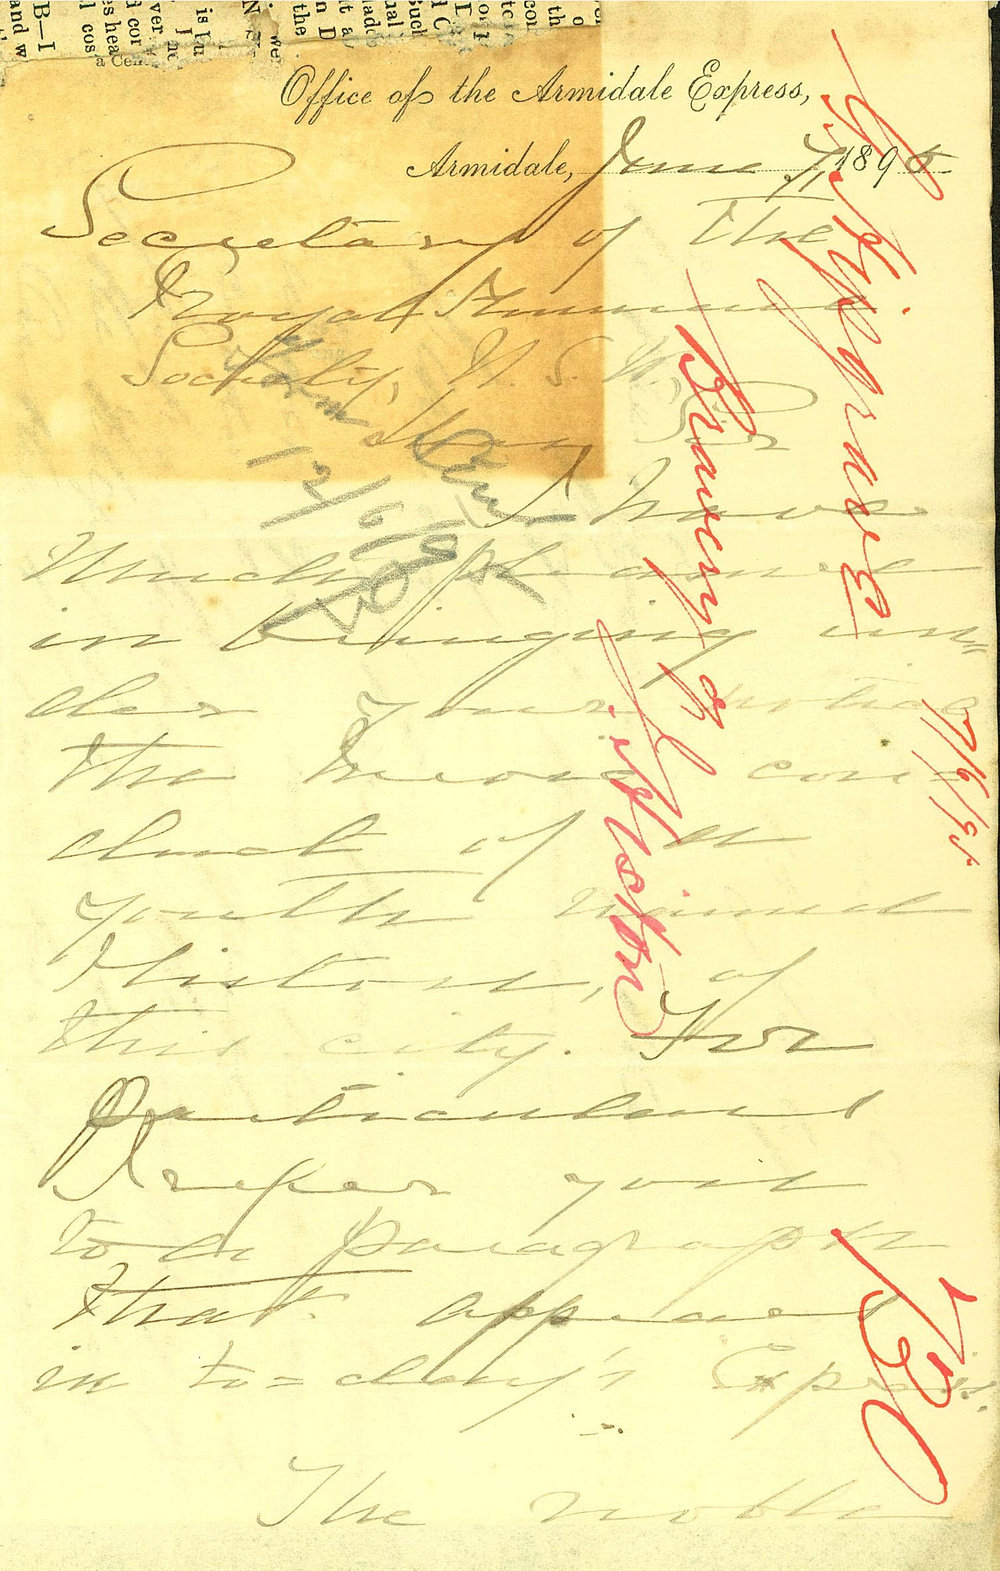 Office of the Armidale Express,
Armidale, June 7, 1895.
Secretary of The
Royal Humane
Society, N. S. W.,
Sir
I have
Much pleasure
in bringing un=
der your notice
the heroic con=
duct of a
youth named
Histon, of
this city. For
Particulars
I refer you
to a paragraph
that appears
in to=day's Express.
The noble
Bravery of
J. Histon
7/6/95
12/6/95
150